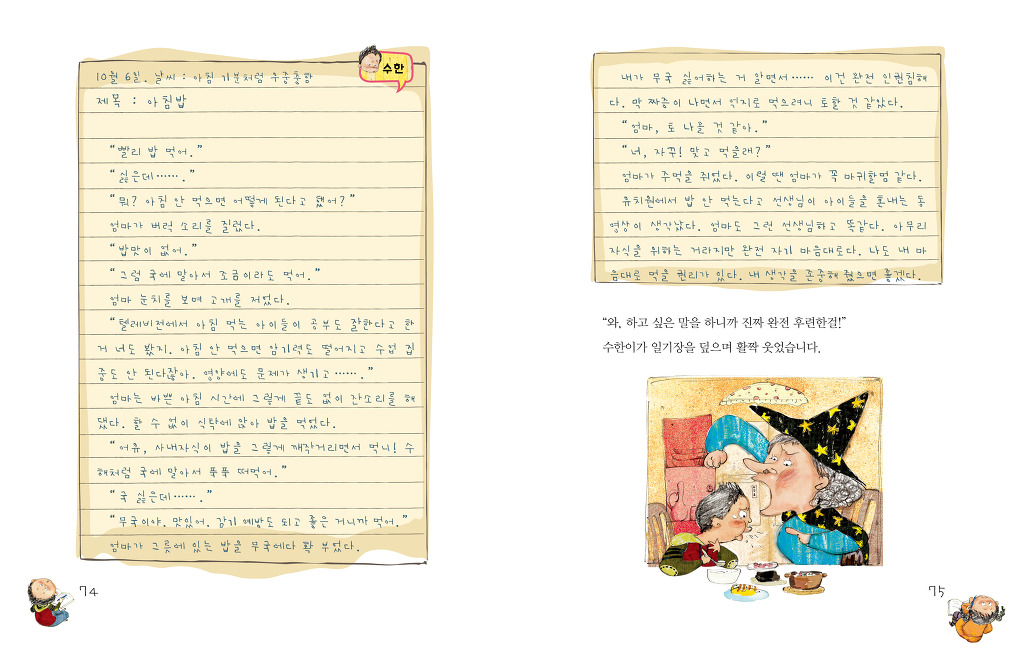 수한
10월 6일. 날씨 : 아침 기분처럼 우중충함
제목 : 아침밥
“빨리 밥 먹어.”
“싫은데…….”
“뭐? 아침 안 먹으면 어떻게 된다고 했어?”
엄마가 버럭 소리를 질렀다.
“밥맛이 없어.”
“그럼 국에 말아서 조금이라도 먹어.”
엄마 눈치를 보며 고개를 저었다.
“텔레비전에서 아침 먹는 아이들이 공부도 잘한다고 한
거 너도 봤지. 아침 안 먹으면 암기력도 떨어지고 수업 집
중도 안 된다잖아. 영양에도 문제가 생기고…….”
엄마는 바쁜 아침 시간에 그렇게 끝도 없이 잔소리를 해
댔다. 할 수 없이 식탁에 앉아 밥을 먹었다.
“어유, 사내자식이 밥을 그렇게 깨작거리면서 먹니! 수
해처럼 국에 말아서 푹푹 떠먹어.”
“국 싫은데…….”
“무국이야. 맛있어. 감기 예방도 되고 좋은 거니까 먹어.”
엄마가 그릇에 있는 밥을 무국에다 확 부었다.
74
내가 무국 싫어하는 거 알면서…… 이건 완전 인권침해
다. 막 짜증이 나면서 억지로 먹으려니 토할 것 같았다.
“엄마, 토 나올 것 같아.”
“너, 자꾸! 맞고 먹을래?”
엄마가 주먹을 쥐었다. 이럴 땐 엄마가 꼭 마귀할멈 같다.
유치원에서 밥 안 먹는다고 선생님이 아이들을 혼내는 동
영상이 생각났다. 엄마도 그런 선생님하고 똑같다. 아무리
자식을 위하는 거라지만 완전 자기 마음대로다. 나도 내 마
음대로 먹을 권리가 있다. 내 생각을 존중해 줬으면 좋겠다.
“와, 하고 싶은 말을 하니까 진짜 완전 후련한걸!”
수한이가 일기장을 덮으며 활짝 웃었습니다.
75